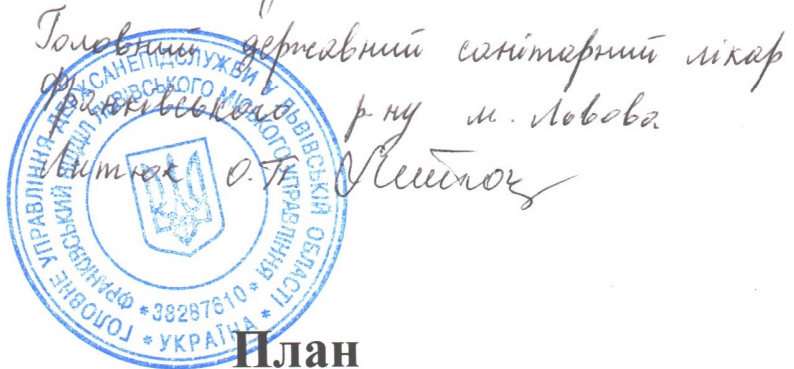 Головний державний санітарний лікар
Франківського р-ну м. Львова
Литюк О.П.
ГОЛОВНЕ УПРАВЛІННЯ ДЕРЖСАНЕПІДСЛУЖБИ У ЛЬВІВСЬКІЙ ОБЛАСТІ
ФРАНКІВСЬКИЙ ВІДДІЛ ЛЬВІВСЬКОГО МІСЬКОГО УПРАВЛІННЯ
* 38287610 *
* УКРАЇНА *
План